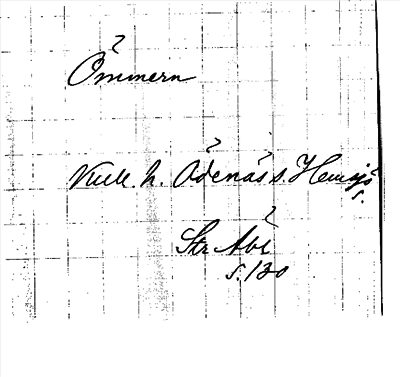 Ömmern
Kulle h. Ödenäs s. Hemsjö
s.
Str Abr
s. 130